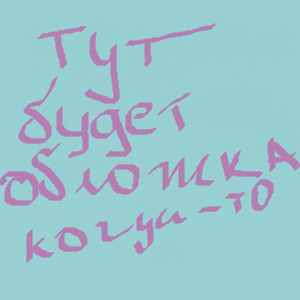 тут
будет
обложка
когда-то